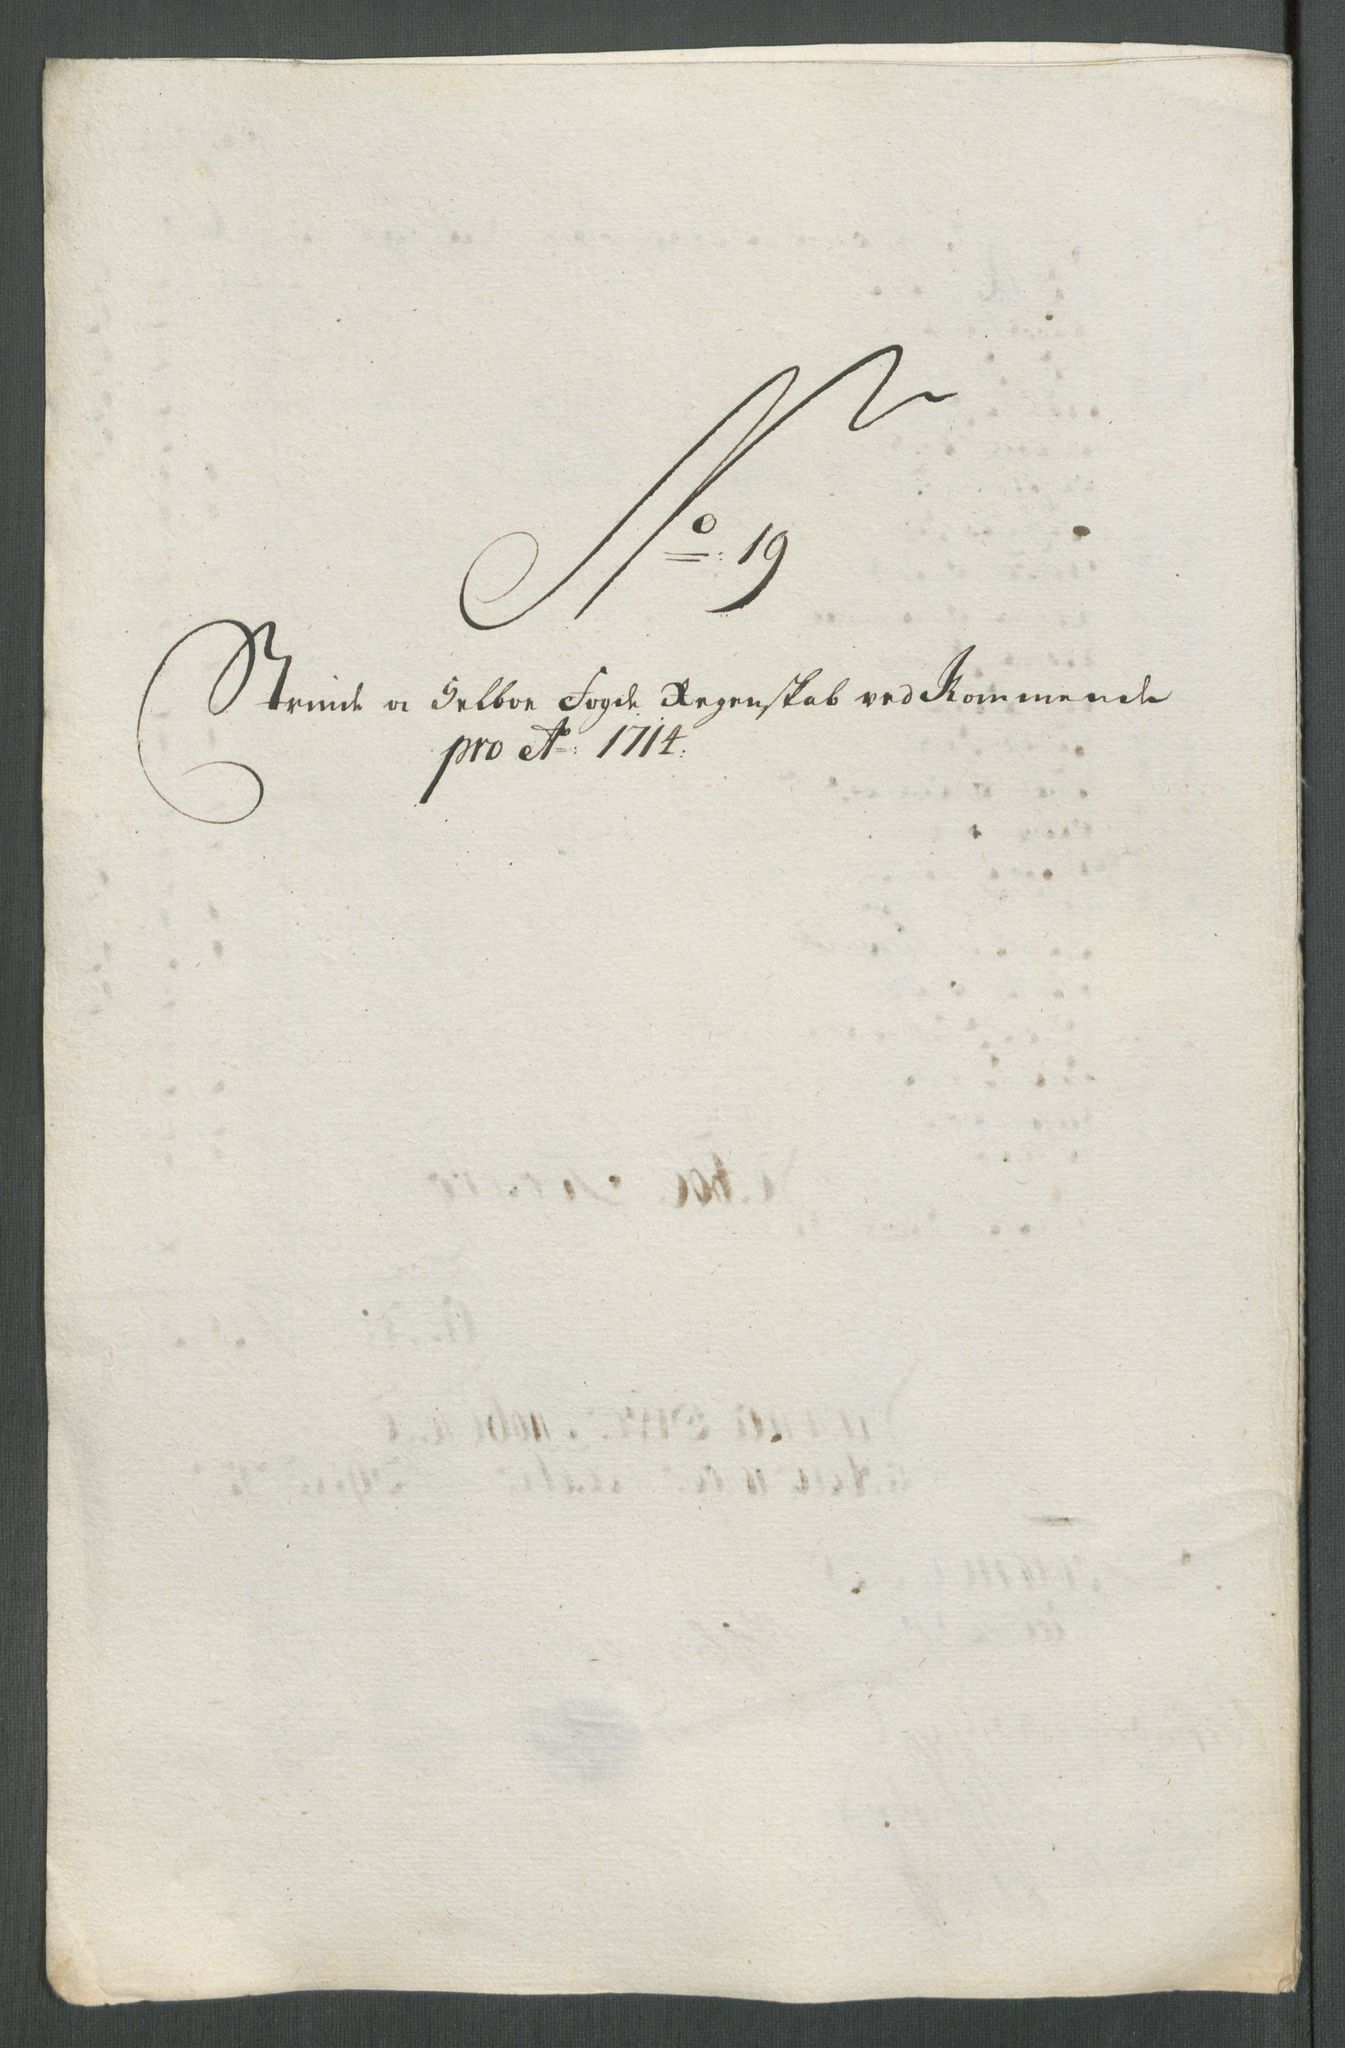 No: 19
Strinde oc Selboe Fogde Regenskab ved Kommende
pro Ao: 1714.